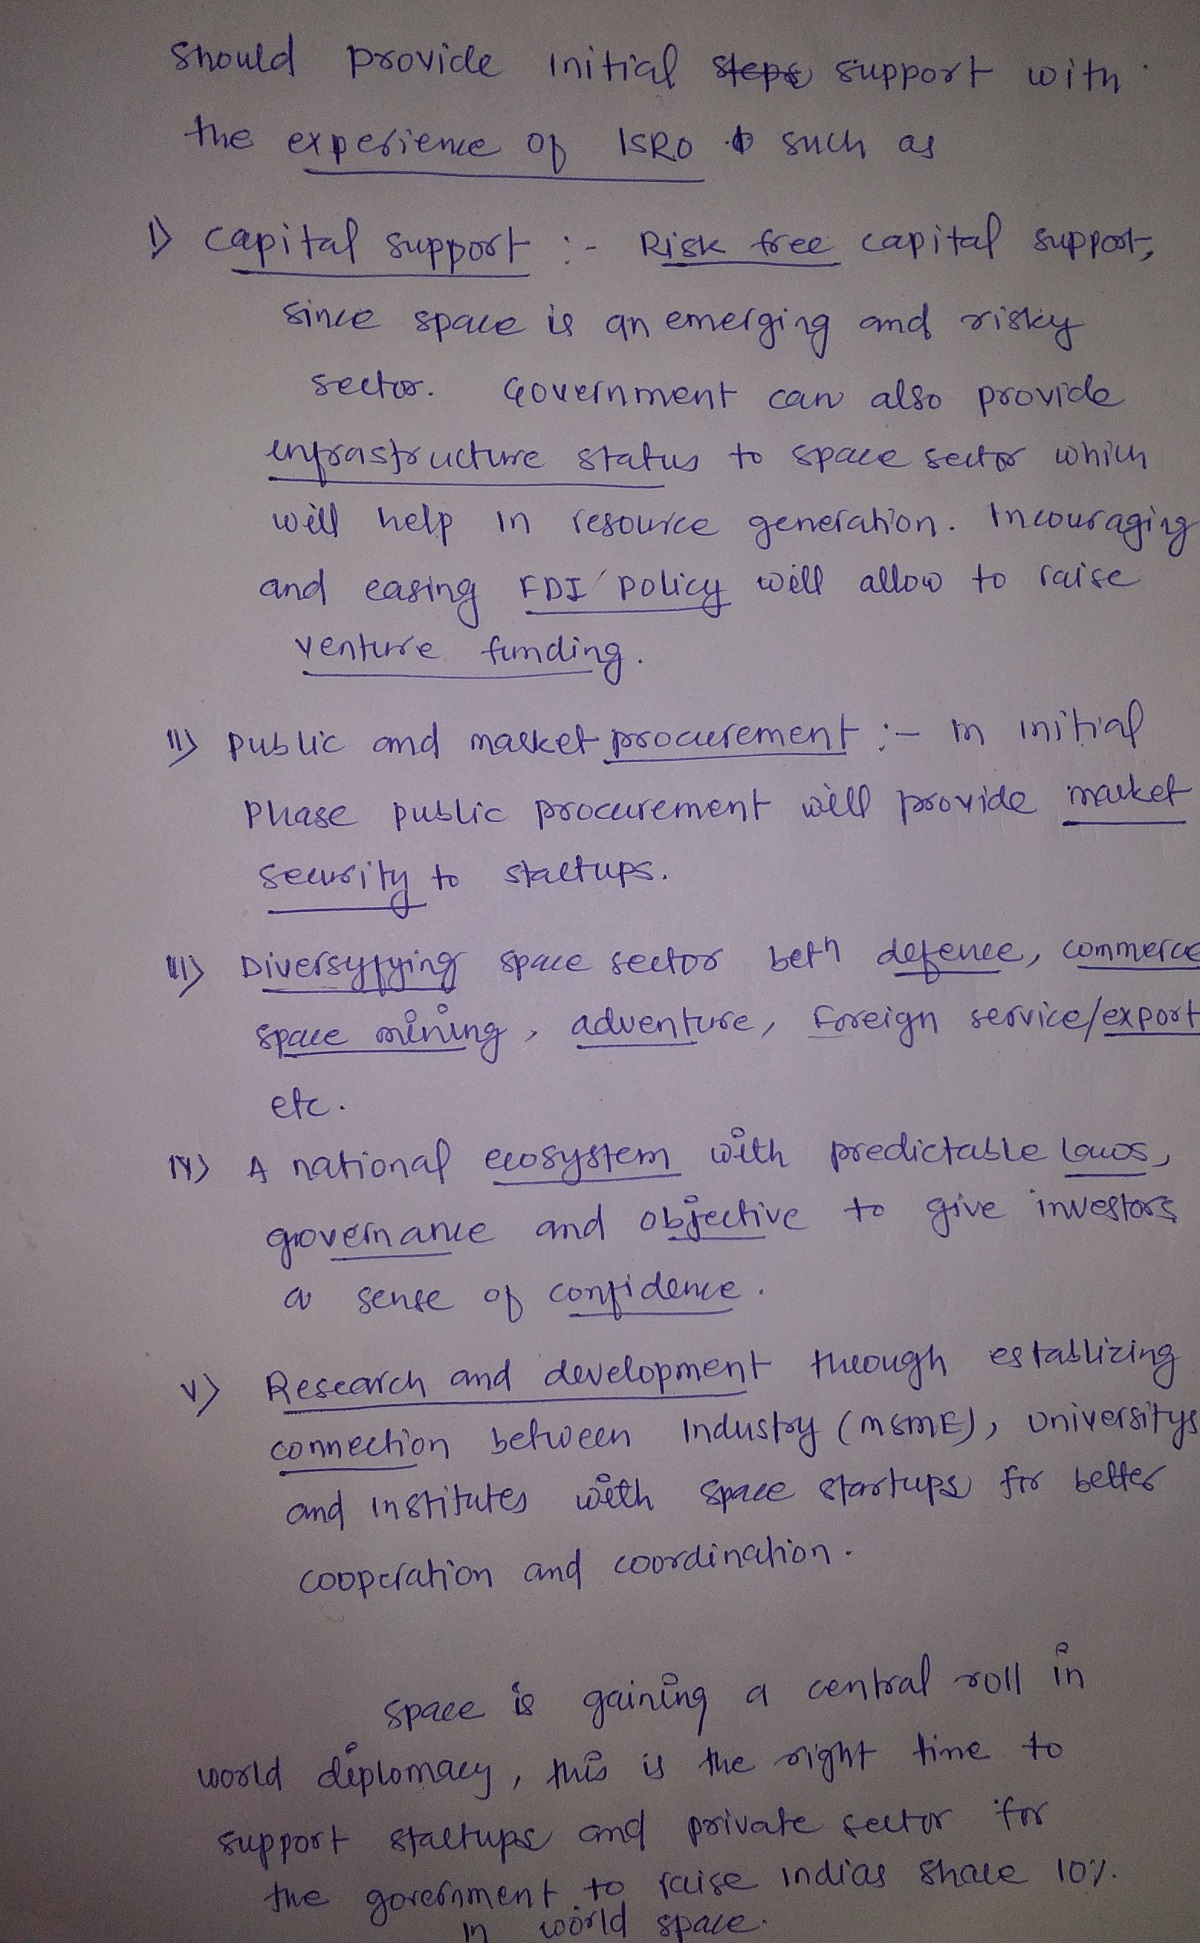 should provide initial steps support with
the experience of ISRO such as
I) Capital support :- Risk free capital support,
since space is an emerging and risky
sector. Government can also provide
infrastructure status to space sector which
will help in resource generation. Incouraging
and easing FDI policy will allow to raise
venture funding.
II) public and market procurement :- in initial
phase public procurement will provide market
security to startups.
III) Diversyfying space sector beth defence, commerce
space mining, adventure, Foreign service/export
etc.
IV) A national ecosystem with predictable laws,
governance and objective to give investors
a sense of confidence.
V) Research and development through establizing
connection between Industry (MSME), Universitys
and institutes with space startups for better
cooperation and coordination.
space is gaining a central roll in
world diplomacy, this is the right time to
support startups and private sector for
the government to raise indias share 10%.
in world space.